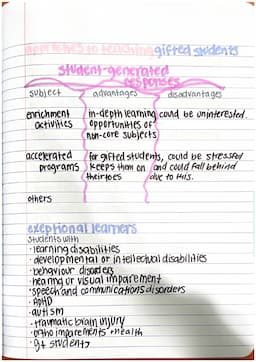 approaches to teaching gifted students
student-generated
responses
subject advantages disadvantages
enrichment in-depth learning could be uninterested
activities opportunities of
non-core subjects
accelerated for gifted students, could be stressed
programs keeps them on and could fall behind
their toes due to this.
others
exeptional learners
students with
· learning disabilities
· developmental or intellectual disabilities
· behaviour disorders
· hearing or visual impairement
· speech and communications disorders
· ADHD
· autism
· traumatic brain injury
· ortho impairements + health
· gt students